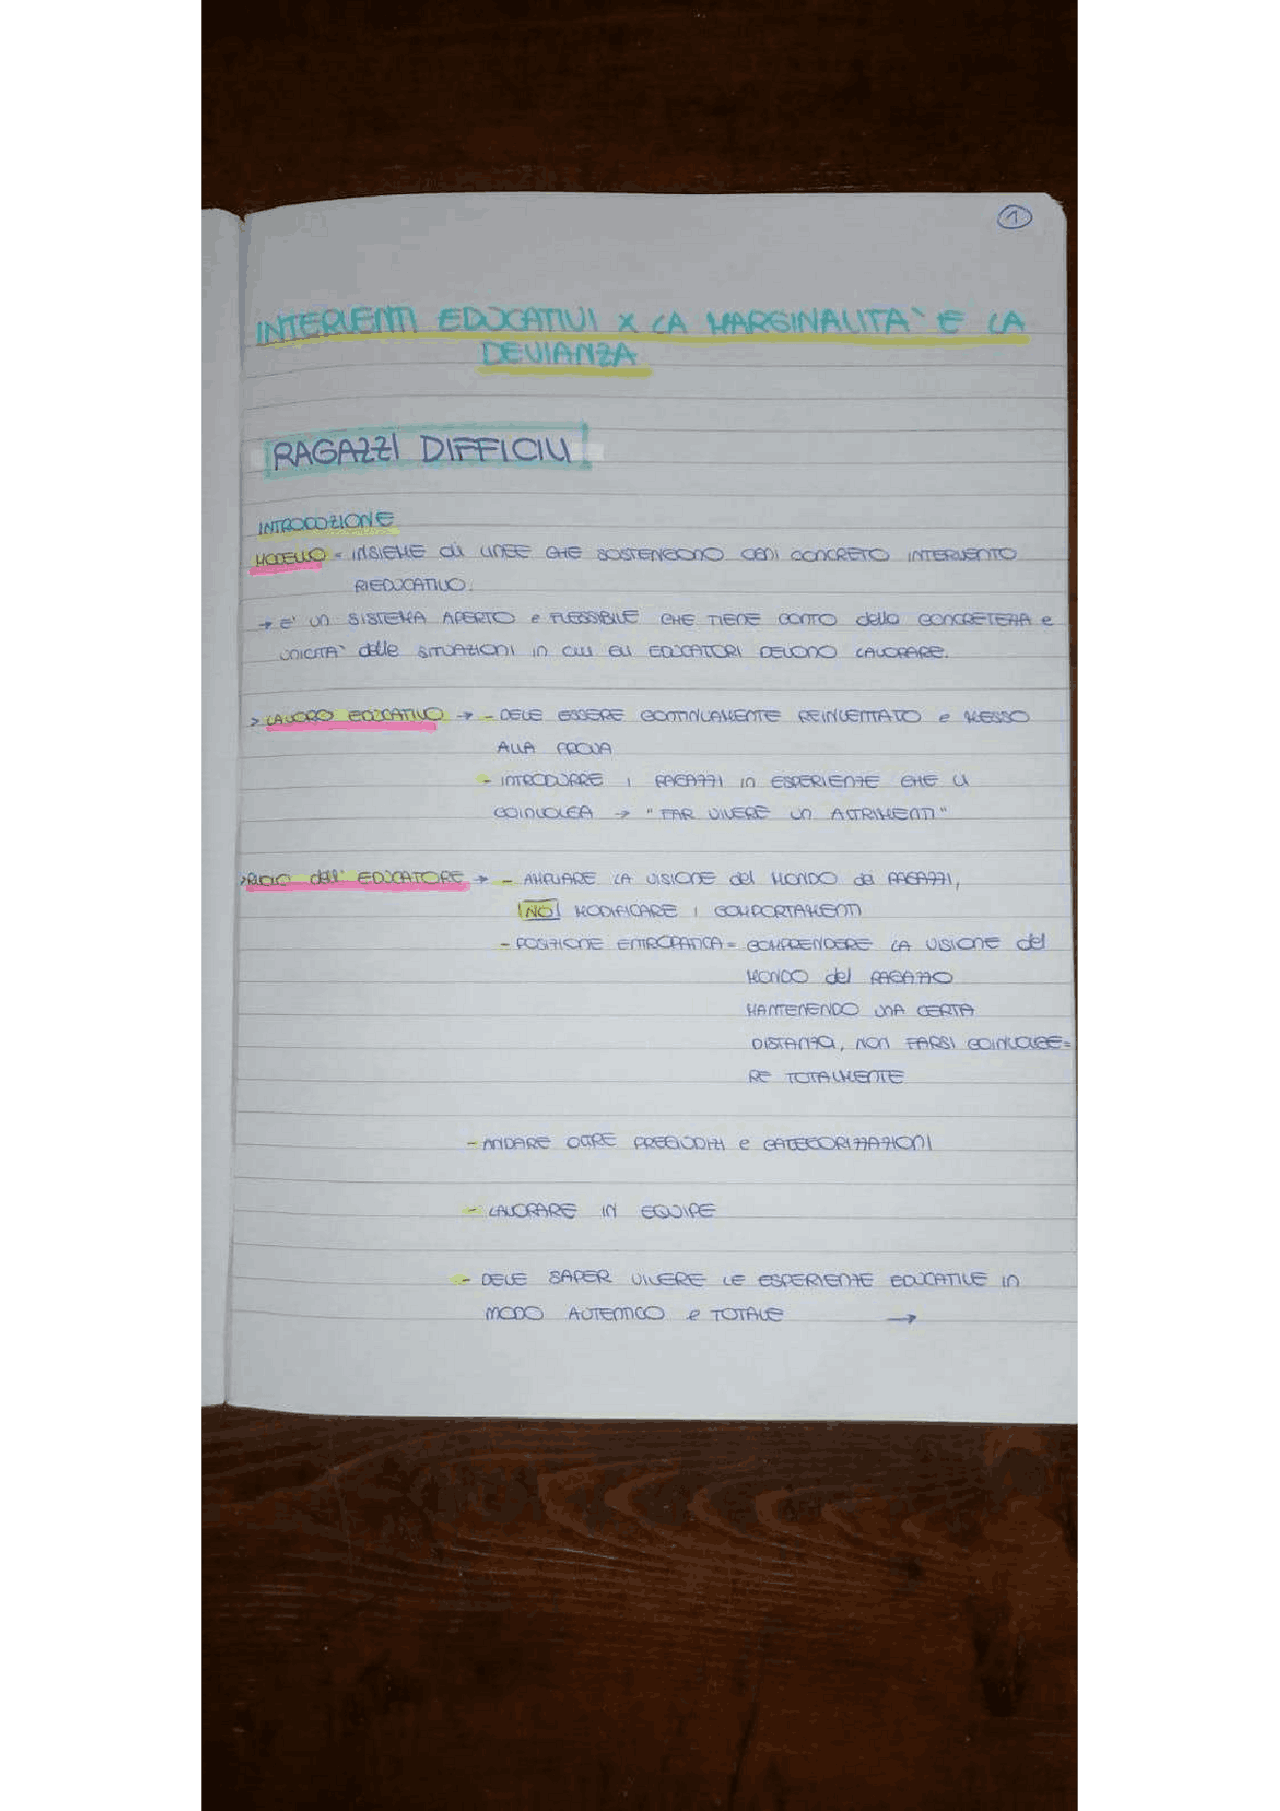 1
INTERVENTI EDUCATIVI X LA MARGINALITA` E LA
DEVIANZA
RAGAZZI DIFFICILI
INTRODUZIONE
MODELLO = INSIEME di LINEE CHE SOSTENGONO OGNI CONCRETO INTERVENTO
RIEDUCATIVO.
→ E' UN SISTEMA APERTO e FLESSIBILE CHE TIENE CONTO della CONCRETEZZA e
UNICITA` delle SITUAZIONI in cui GLI EDUCATORI DEVONO LAVORARE.
> LAVORO EDUCATIVO → - DEVE ESSERE CONTINUAMENTE REINVENTATO e MESSO
ALLA PROVA
- INTRODURRE I RAGAZZI in ESPERIENZE CHE LI
COINVOLGA → " FAR VIVERE UN ALTRIMENTI "
> RUOLO dell' EDUCATORE → - AMPLIARE LA VISIONE del MONDO dei RAGAZZI,
NO MODIFICARE I COMPORTAMENTI
- POSIZIONE ENTROPATICA = COMPRENDERE LA VISIONE del
MONDO del RAGAZZO
MANTENENDO UNA CERTA
DISTANZA, NON FARSI COINVOLGE=
RE TOTALMENTE
- ANDARE OLTRE PREGIUDIZI e CATEGORIZZAZIONI
- LAVORARE IN EQUIPE
- DEVE SAPER VIVERE LE ESPERIENZE EDUCATIVE in
MODO AUTENTICO e TOTALE →